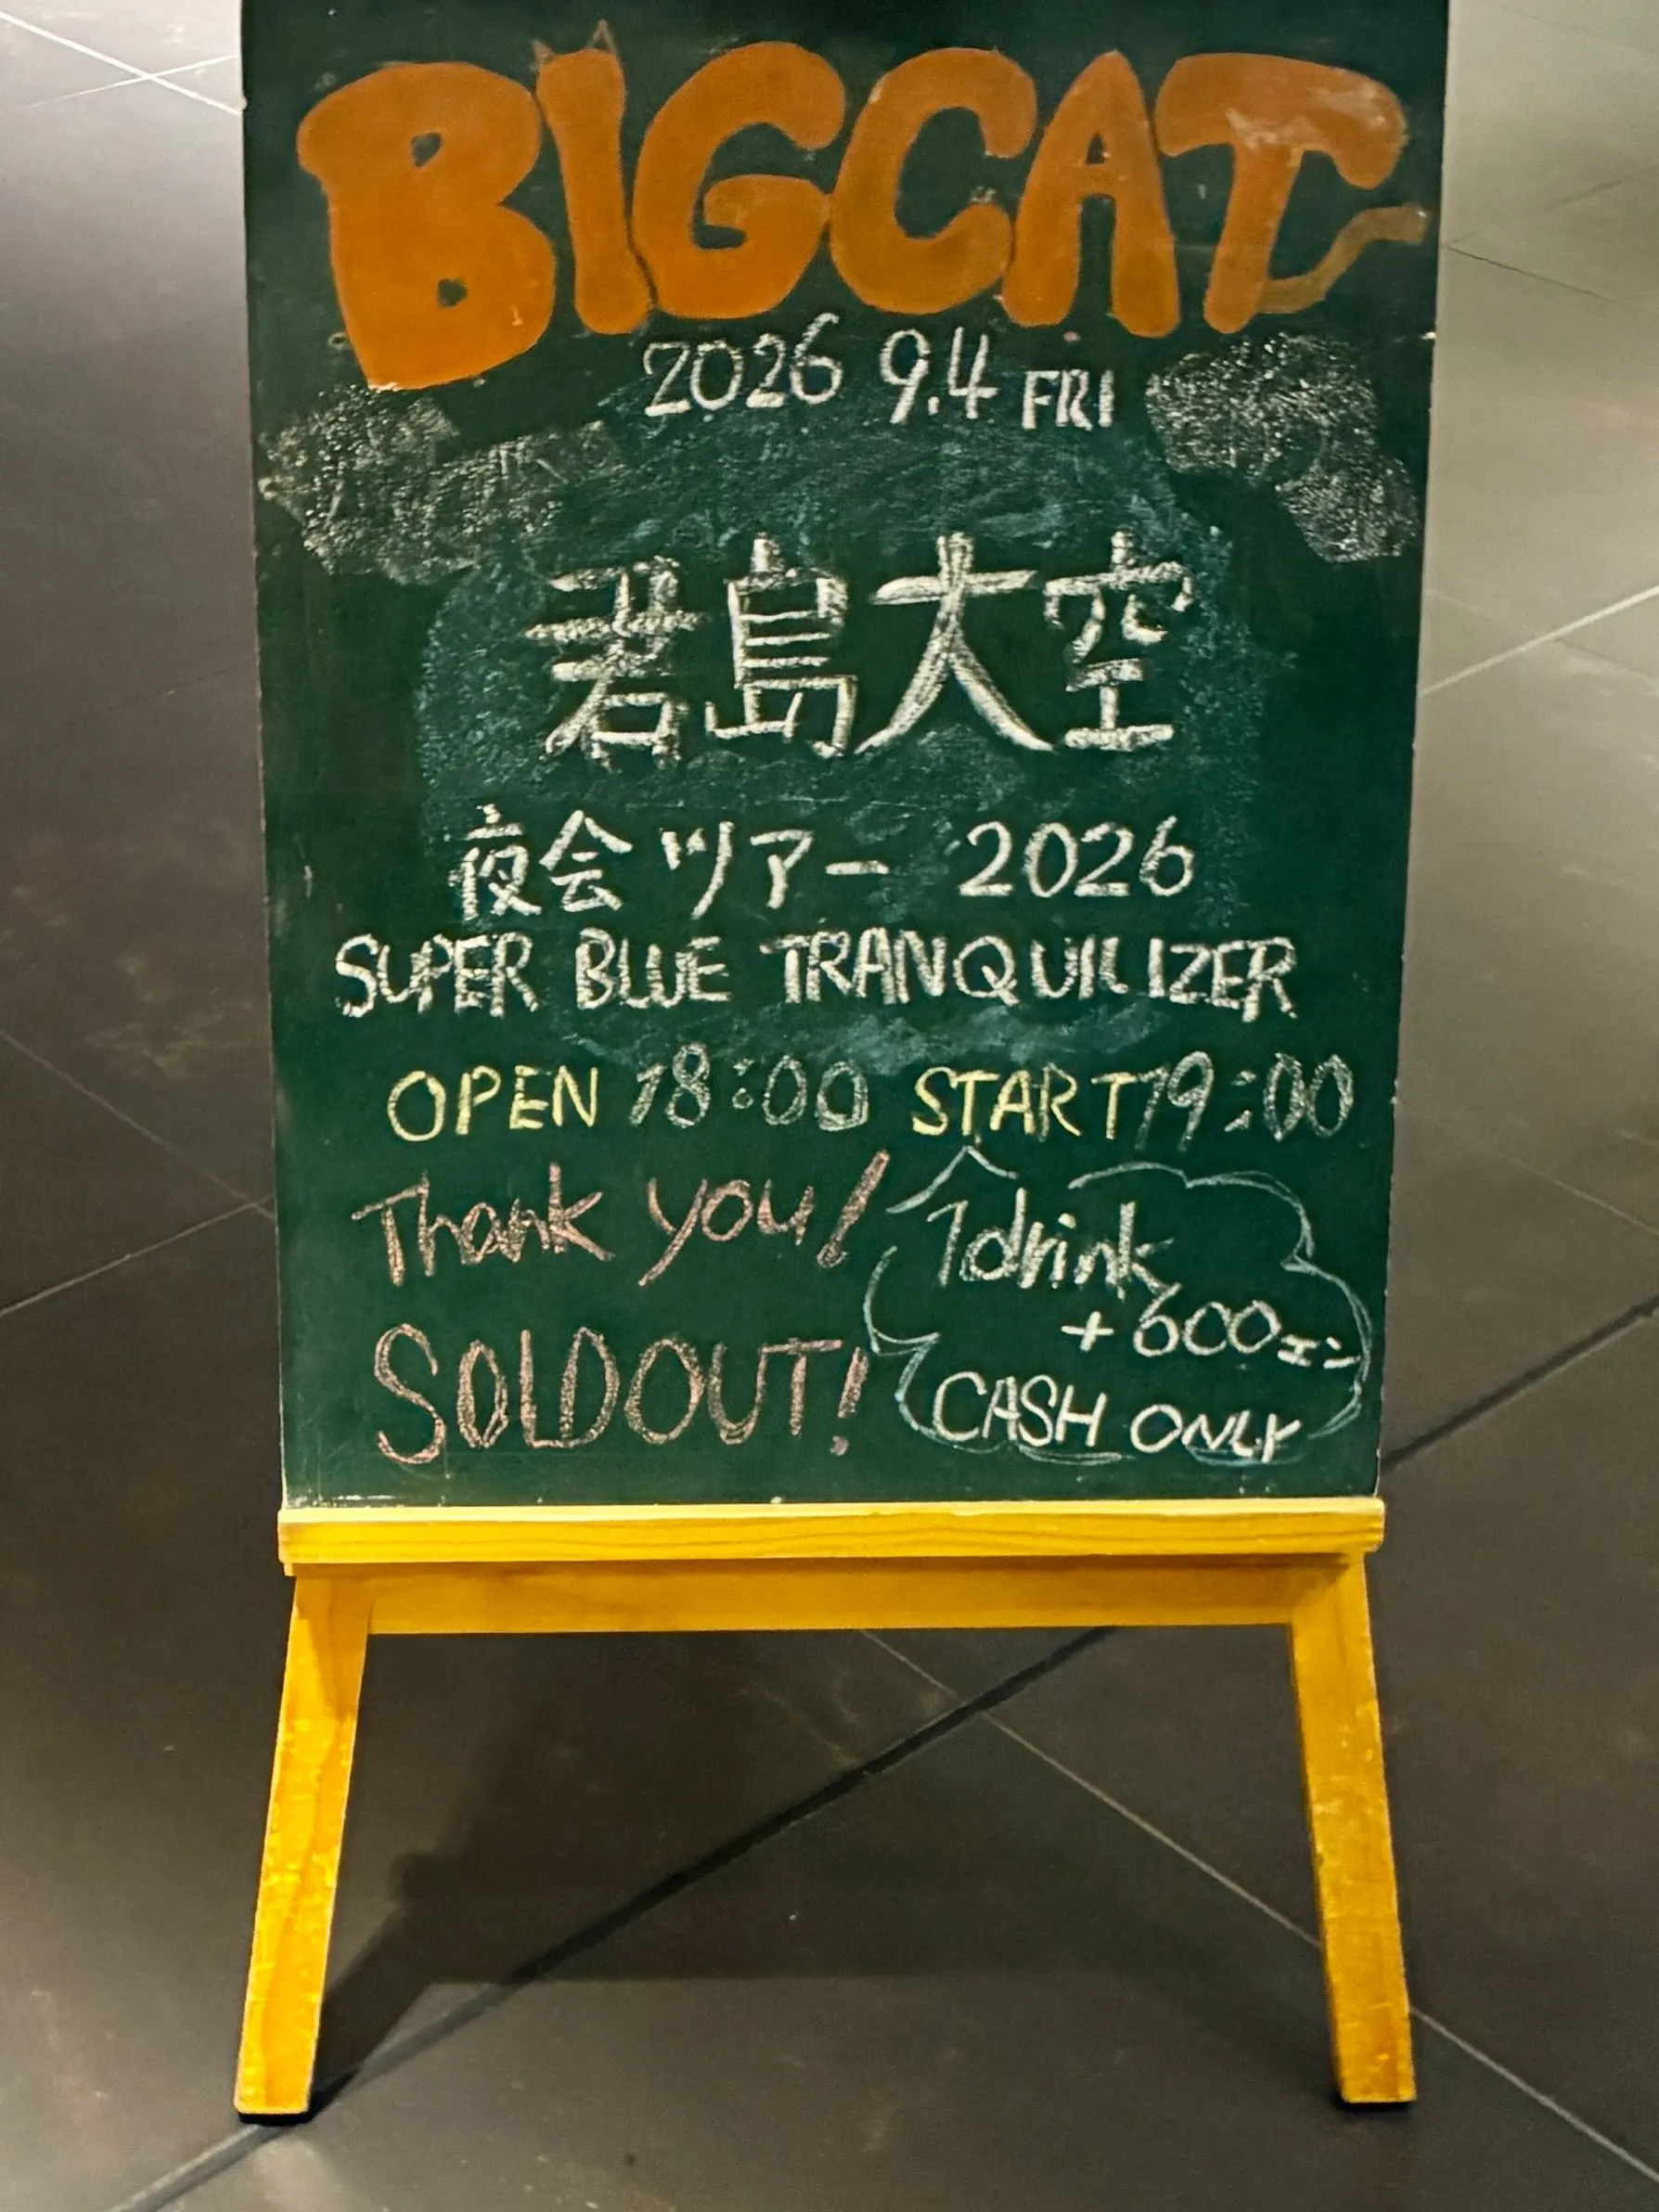 BIGCAT
2026 9.4 FRI
君島大空
夜会ツアー 2026
SUPER BLUE TRANQUILIZER
OPEN 18:00 START 19:00
Thank you!
SOLDOUT!
1drink
+600エン
CASH ONLY